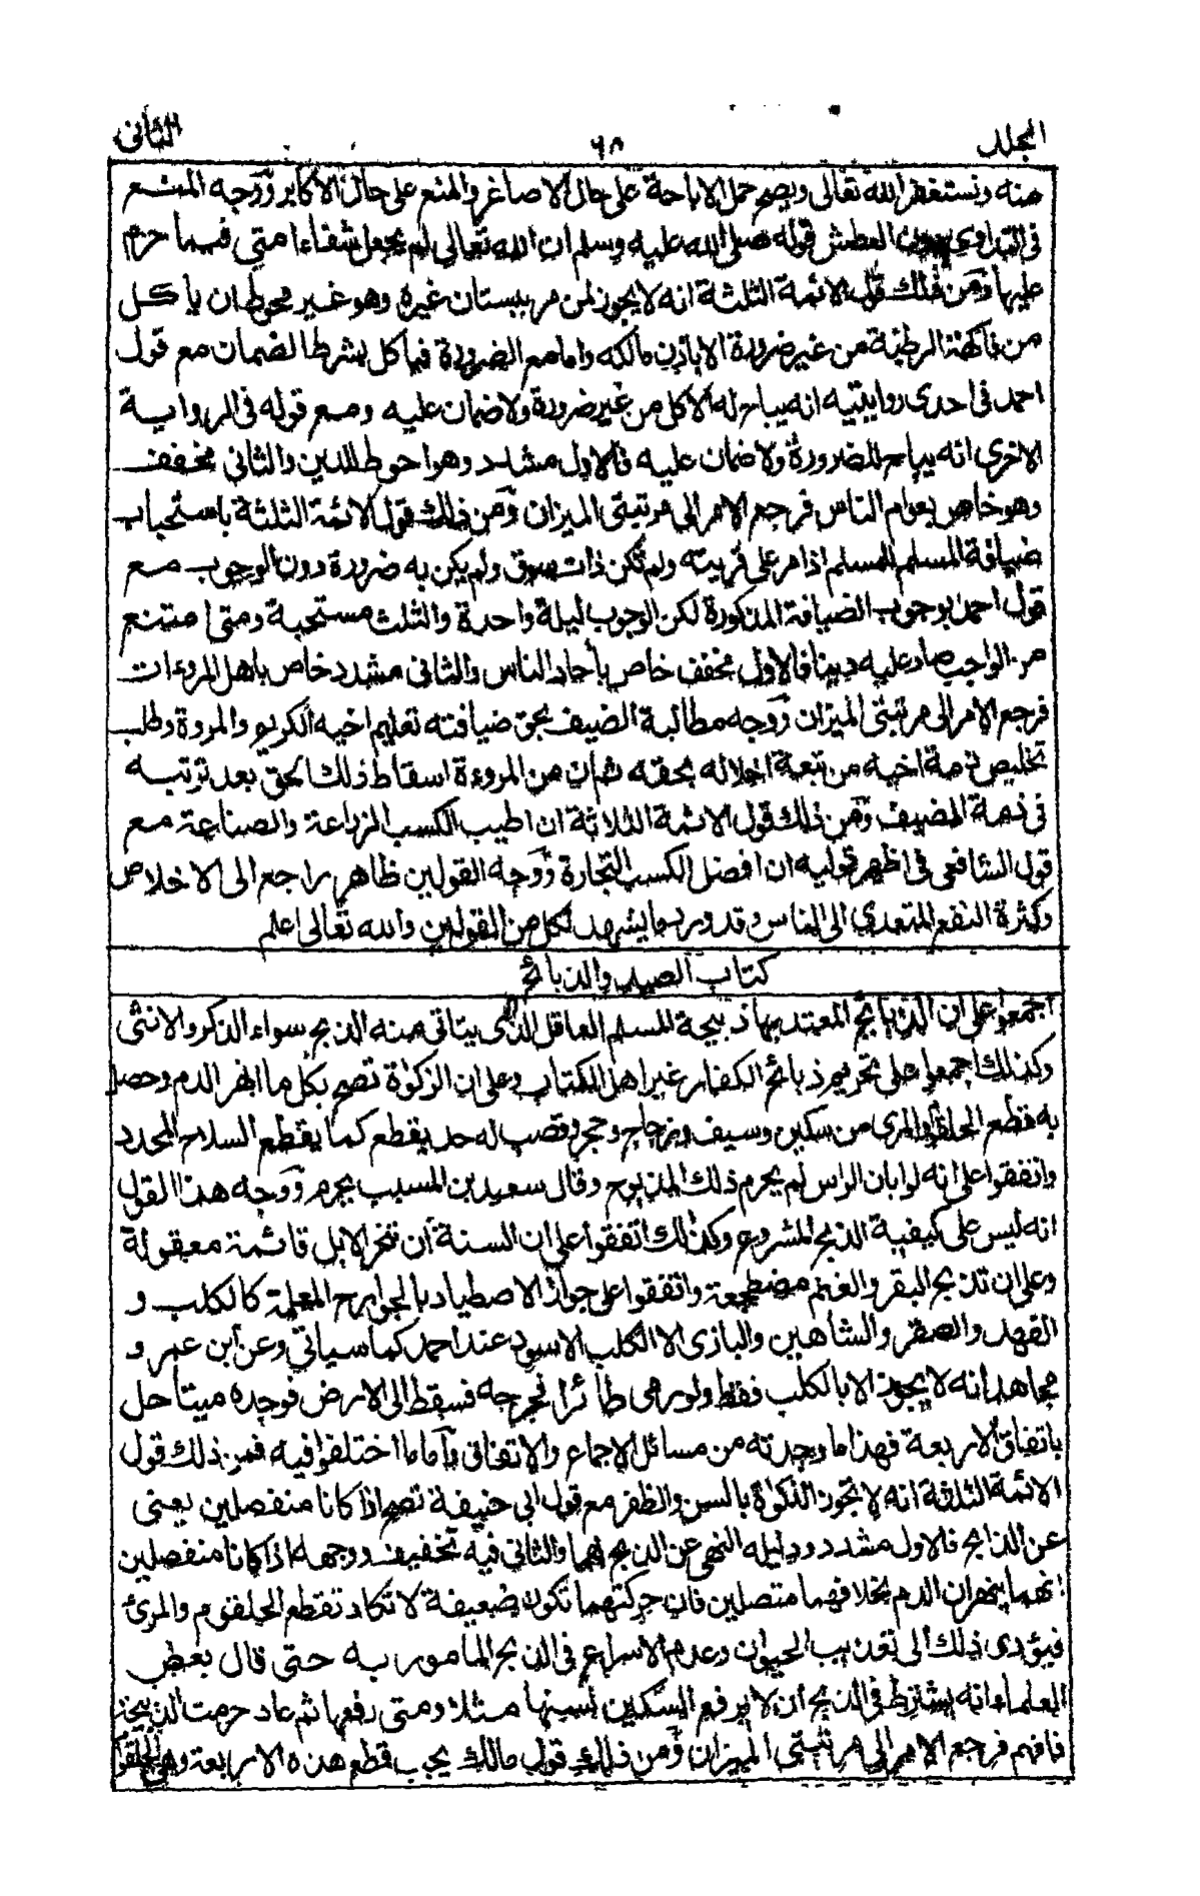 المجلد ٦٨ الثانى
منه ونستغفر الله تعالى ويصح حمل الاباحة على حال الاصاغر والمنع على حال الاكابر ووجه المنع
فى التداوى دون العطش قوله صلى الله عليه وسلم ان الله تعالى لم يجعل شفاء امتى فيما حرم
عليها ومن ذلك قول الائمة الثلثة انه لا يجوز لمن مر ببستان غيره وهو غير محوط ان ياكل
من فاكهته الرطبة من غير ضرورة الا باذن مالكه واما مع الضرورة فياكل بشرط الضمان مع قول
احمد فى احدى روايتيه انه يباح له الاكل من غير ضرورة ولا ضمان عليه ومع قوله فى الرواية
الاخرى انه يباح للضرورة ولا ضمان عليه فالاول مشدد وهو احوط للدين والثانى مخفف
وهو خاص بعوام الناس فرجع الامر الى مرتبتى الميزان ومن ذلك قول الائمة الثلثة باستحباب
ضيافة المسلم للمسلم اذا مر على قريته ولم تكن ذات سوق ولم يكن به ضرورة دون الوجوب مع
قول احمد بوجوب الضيافة المذكورة لكن الوجوب ليلة واحدة والثلث مستحبة ومتى امتنع
من الواجب صار عليه دينا فالاول مخفف خاص بأحاد الناس والثانى مشدد خاص باهل المروءات
فرجع الامر الى مرتبتى الميزان ووجه مطالبة الضيف بحق ضيافته تعليم اخيه الكرم والمروة وطلب
تخليص ذمة اخيه من تبعة اخلاله بحقه ثم ان من المروءة اسقاط ذلك الحق بعد ترتبه
فى ذمة المضيف ومن ذلك قول الائمة الثلاثة ان اطيب الكسب الزراعة والصناعة مع
قول الشافعى فى اظهر قوليه ان افضل الكسب التجارة ووجه القولين ظاهر راجع الى الاخلاص
وكثرة النفع المتعدى الى الناس وقد ورد ما يشهد لكل من القولين والله تعالى اعلم
كتاب الصيد والذبائح
اجمعوا على ان الذبائح المعتد بها ذبيحة المسلم العاقل الذى يتاتى منه الذبح سواء الذكر والانثى
وكذلك اجمعوا على تحريم ذبائح الكفار غير اهل الكتاب وعلى ان الزكوة تصح بكل ما انهر الدم وحصل
به قطع الحلقوم والمرى من سكين وسيف وزجاج وحجر وقصب له حد يقطع كما يقطع السلاح المحدد
واتفقوا على انه لو ابان الراس لم يحرم ذلك المذبوح وقال سعيد بن المسيب يحرم ووجه هذا القول
انه ليس على كيفية الذبح المشروع وكذلك اتفقوا على ان السنة ان تنحر الابل قائمة معقولة
وعلى ان تذبح البقر والغنم مضطجعة واتفقوا على جواز الاصطياد بالجوارح المعلمة كالكلب و
الفهد والصقر والشاهين والبازى الا الكلب الاسود عند احمد كما سياتى وعن ابن عمر و
مجاهد انه لا يجوز الا بالكلب فقط ولو رمى طائرا فجرحه فسقط الى الارض فوجده ميتا حل
باتفاق الاربعة فهذا ما وجدته من مسائل الاجماع والاتفاق واما ما اختلفوا فيه فمن ذلك قول
الائمة الثلثة انه لا تجوز الذكوة بالسن والظفر مع قول ابى حنيفة تصح اذا كانا منفصلين يعنى
عن الذابح فالاول مشدد ودليله النهى عن الذبح بهما والثانى فيه تخفيف ووجهه اذا كانا منفصلين
انهما ينهران الدم بخلافهما متصلين فان حركتهما تكون ضعيفة لا تكاد تقطع الحلقوم والمرئ
فيؤدى ذلك الى تعذيب الحيوان وعدم الاسراع فى الذبح المامور به حتى قال بعض
العلماء انه يشترط فى الذبح ان لا يرفع السكين لسنها مثلا ومتى رفعها ثم عاد حرمت الذبيحة
فافهم فرجع الامر الى مرتبتى الميزان ومن ذلك قول مالك يجب قطع هذه الاربعة وهى الحلقوم